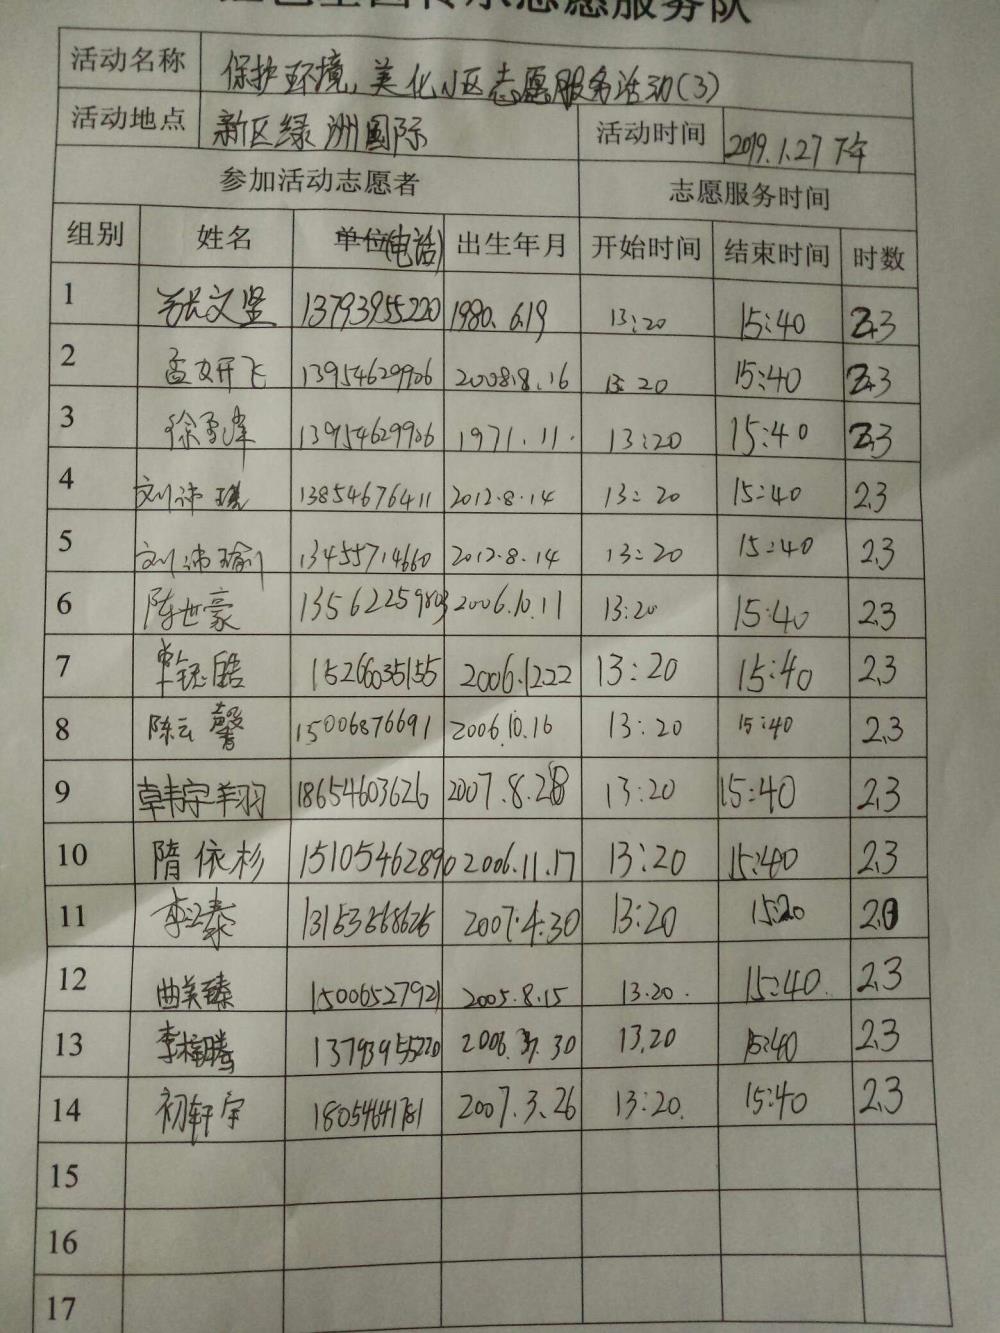 志愿服务队
活动名称 保护环境、美化小区志愿服务活动(3)
活动地点 新区绿洲国际 活动时间 2019.1.27 下午
参加活动志愿者 志愿服务时间
组别 姓名 单位(电话) 出生年月 开始时间 结束时间 时数
1 张文坚 13793955220 1980.6.19 13:20 15:40 2.3
2 孟妍飞 13954629906 2008.8.16 13:20 15:40 2.3
3 13954629906 1971.11. 13:20 15:40 2.3
4 刘 13854676411 2012.8.14 13:20 15:40 2.3
5 刘 瑜 13455714660 2012.8.14 13:20 15:40 2.3
6 陈世豪 13562259803 2006.10.11 13:20 15:40 2.3
7 15266035155 2006.12.22 13:20 15:40 2.3
8 陈云馨 15006876691 2006.10.16 13:20 15:40 2.3
9 18654603626 2007.8.28 13:20 15:40 2.3
10 隋依杉 15105462890 2006.11.17 13:20 15:40 2.3
11 2007.4.30 13:20 15:20 2.0
12 曲美臻 15006527921 2005.8.15 13:20. 15:40. 2.3
13 李梓腾 13793955220 13.20 15:40 2.3
14 初轩宇 18054641781 2007.3.26 13:20. 15:40 2.3
15
16
17